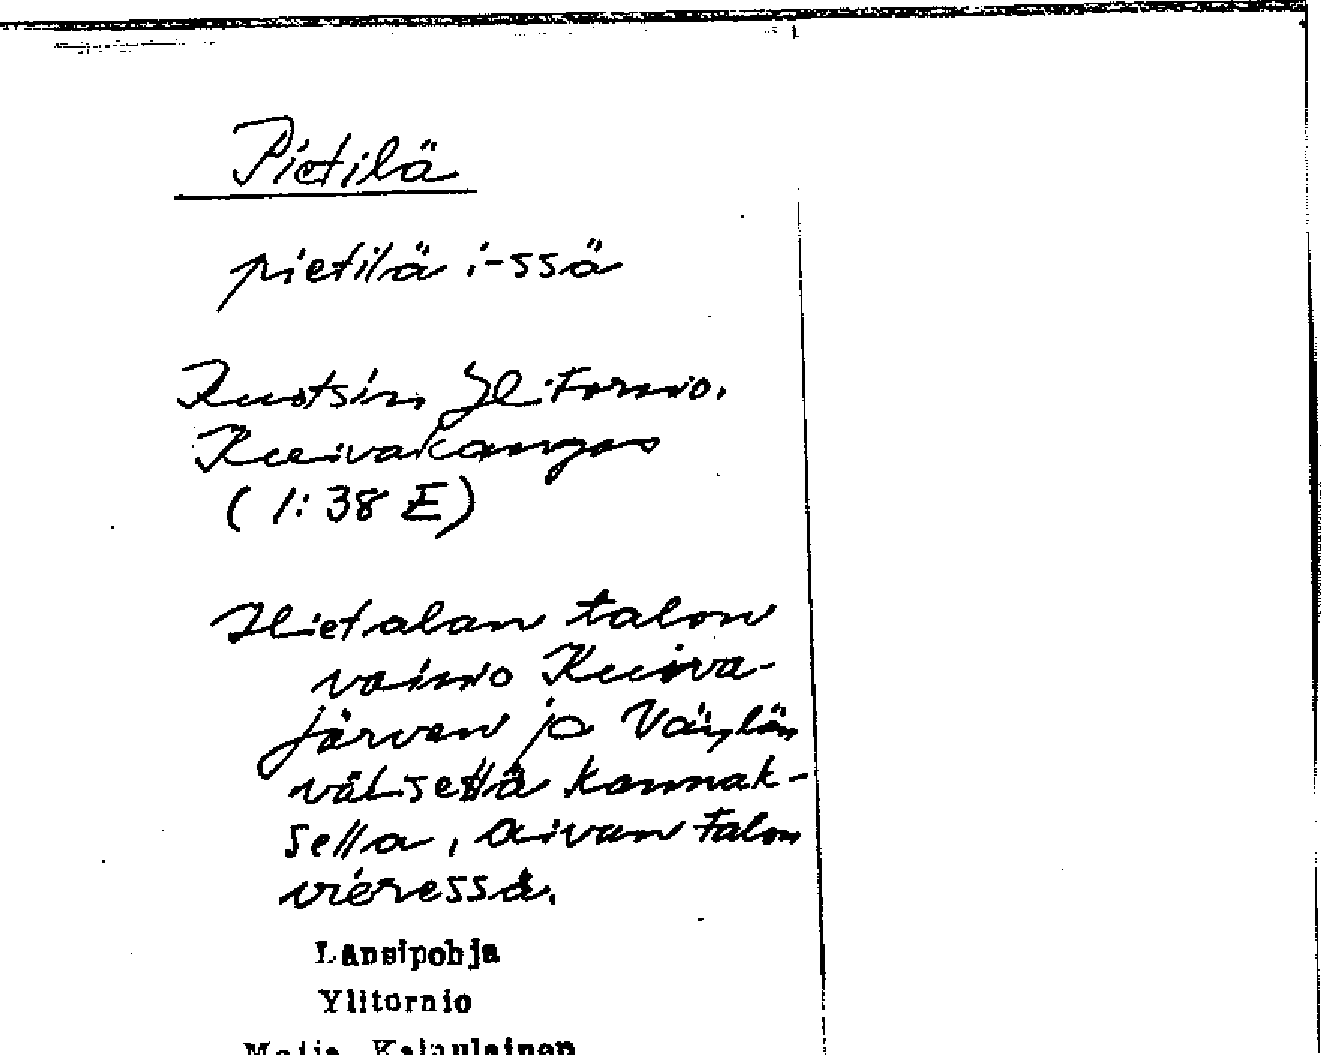 Pietilä
pietilä i-ssä
Ruotsin Yli-Tornio.
Kuivakangas
(1:38 E)
Hietalan talon
vainio Kuiva-
järven ja Väylän
välisellä kannak-
sella, aivan talon
vieressä.
Länsipohja
Ylitornio
Maija